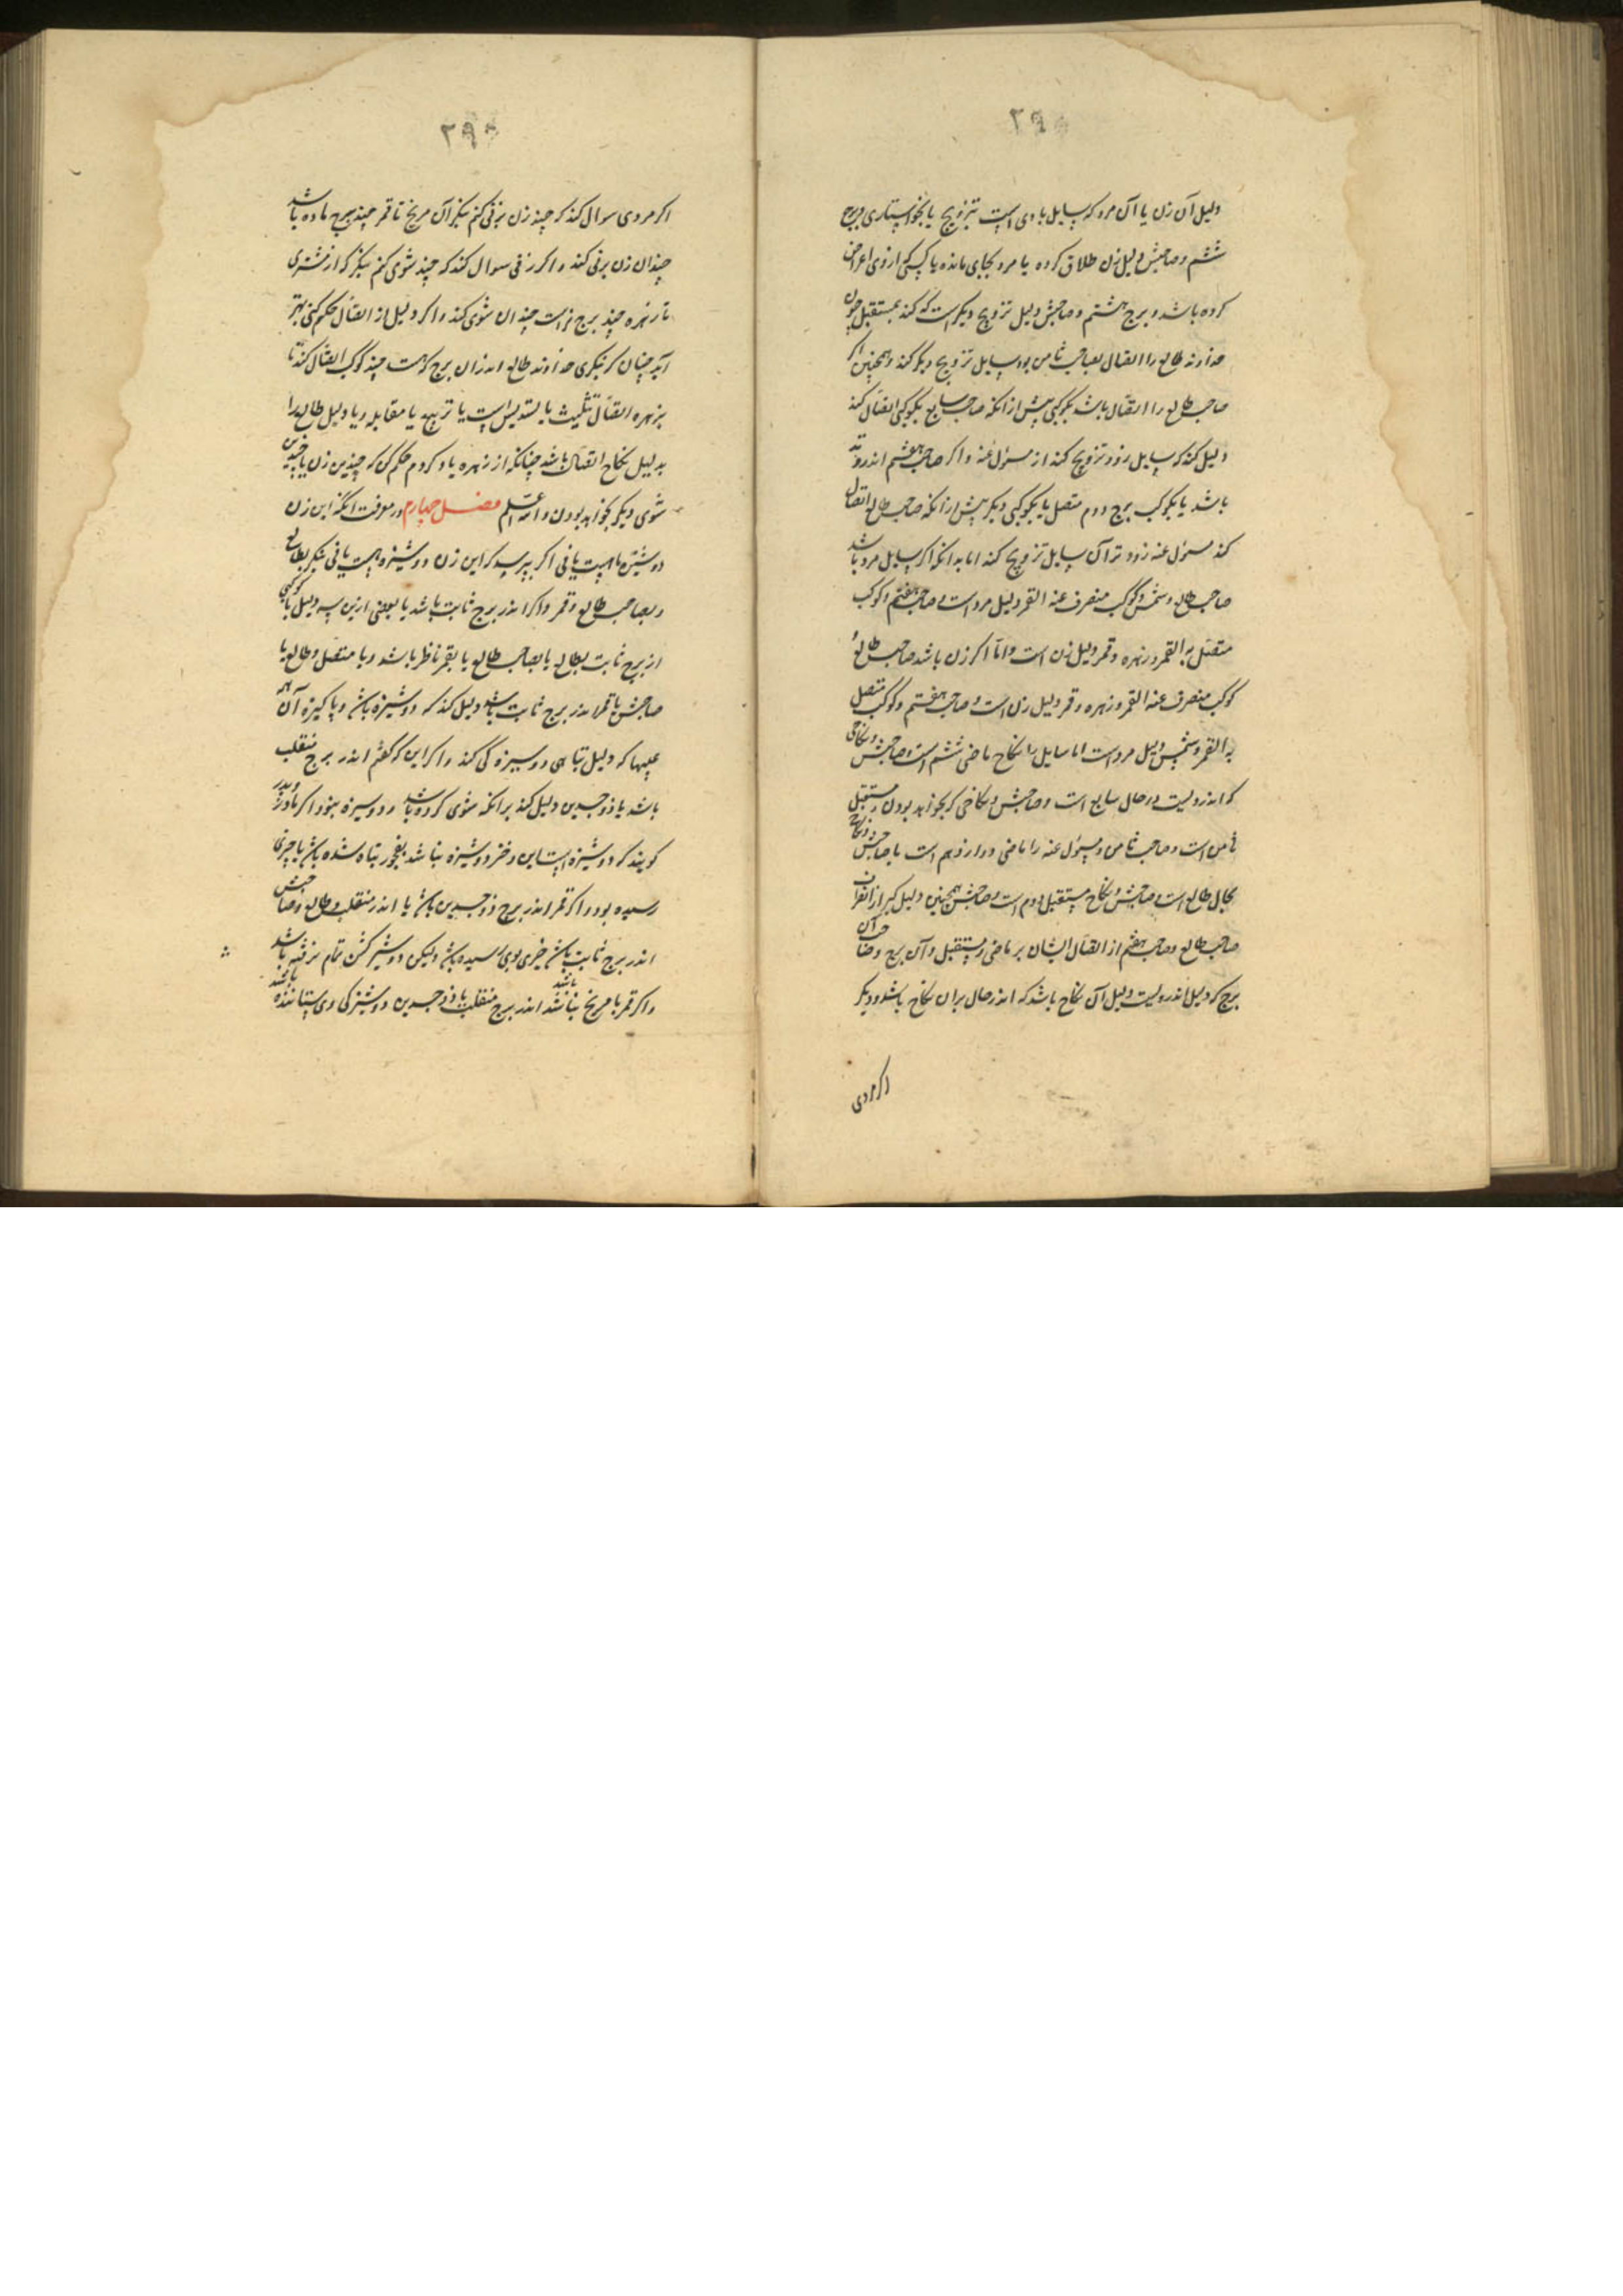 ۲۹۵
دلیل آن زن یا آن مرد که سایل با وی است بتزویج یا بخواستاری و برج
ششم و صاحبش دلیل زن طلاق کرده یا مرد بجای مانده یا کسی که از وی اعراض
کرده باشد و برج هشتم و صاحبش دلیل تزویج دیکر است که کند بمستقبل چون
خداوند طالع را اتصال بصاحب ثامن بود سایل تزویج دیکر کند و همچنین اکر
صاحب طالع را اتصال باشد بکوکبی پیش از انکه صاحب سابع بکوکبی اتصال کند
دلیل کند که سایل زودتر تزویج کند از مسؤل عنه و اکر صاحب هشتم اندر وتد
باشد یا بکوکب برج دوم متصل یا بکوکبی دیکر پیش از انکه صاحب طالع اتصال
کند مسؤل عنه زودتر از آن سایل تزویج کند اما بدانکه اکر سایل مرد باشد
صاحب طالع و شمس و کوکب منصرف عنه القمر دلیل مرد است و صاحب هفتم و کوکب
متصل به القمر و زهره و قمر دلیل زن است و اما اکر زن باشد صاحب طالع و
کوکب منصرف عنه القمر و زهره و قمر دلیل زن است و صاحب هفتم و کوکب متصل
به القمر و شمس دلیل مرد است اما سایل را نکاح ماضی ششم است و صاحبش و نکاحی
که اندرویست در حال سابع است و صاحبش و نکاحی که بخواهد بودن مستقبل
ثامن است و صاحب ثامن و مسؤل عنه را ماضی دوازدهم است یا صاحبش و نکاح
بحال طالع است و صاحبش و نکاح مستقبل دوم است و صاحبش همچنین دلیل کیر از انصراف
صاحب طالع و صاحب هفتم از اتصال ایشان بر ماضی و مستقبل و آن برج و صاحب آن
برج که دلیل اندرویست دلیل آن نکاح باشد که اندر حال بران نکاح باشد و دیکر
اکر مردی
۲۹۵
اکر مردی سوال کند که چند زن بزنی کنم بنکر آن مریخ تا قمر چند برج ماده باشد
چندان زن بزنی کند و اکر زنی سوال کند که چند شوی کنم بنکر که از مشتری
تا زهره چند برج نر است چندان شوی کند و اکر دلیل از اتصال حکم کنی بهتر
آید چنان کر نیکری خداوند طالع اندران برج که هست چند کوکب اتصال کند تا
بزهره اتصال تثلیث یا تسدیس است یا تربیع یا مقابله و یا دلیل طالع را
بدلیل نکاح اتصال باشد چنانکه از زهره یاد کردم حکم کن که چندین زن یا چندین
شوی دیکر بخواهد بودن والله اعلم فصل چهارم در معرفت انکه این زن
دوشیزه هست یا نی اکر بپرسد که این زن دوشیزه هست یا نی بنکر بطالع
و بصاحب طالع و قمر و اکر اندر برج ثابت باشد یا بعضی ازین سه دلیل با کوکبی
از برج ثابت بطالع یا بصاحب طالع یا بقمر ناظر باشد و یا متصل و طالع یا
صاحبش یا قمر اندر برج ثابت باشد دلیل کند که دوشیزه باشد و پاکیزه از آن همه
عیبها که دلیل تباهی دوشیزه کی کند و اکر این که کفتم اندر برج منقلب
باشد یا ذوجسدین دلیل کند برانکه شوی کرده باشد و دوشیزه نبود اکر مادر و پدر
کویند که دوشیزه است این دختر دوشیزه نباشد بفجور تباه شده باشد یا چیزی
رسیده بود و اکر قمر اندر برج ذوجسدین باشد یا اندر منقلب و طالع و صاحبش
اندر برج ثابت باشد چیزی بوی رسیده باشد ولیکن دوشیزکیش تمام نرفته باشد
و اکر قمر با مریخ باشد اندر برج منقلب یا ذوجسدین دوشیزکی وی ستاننده باشد